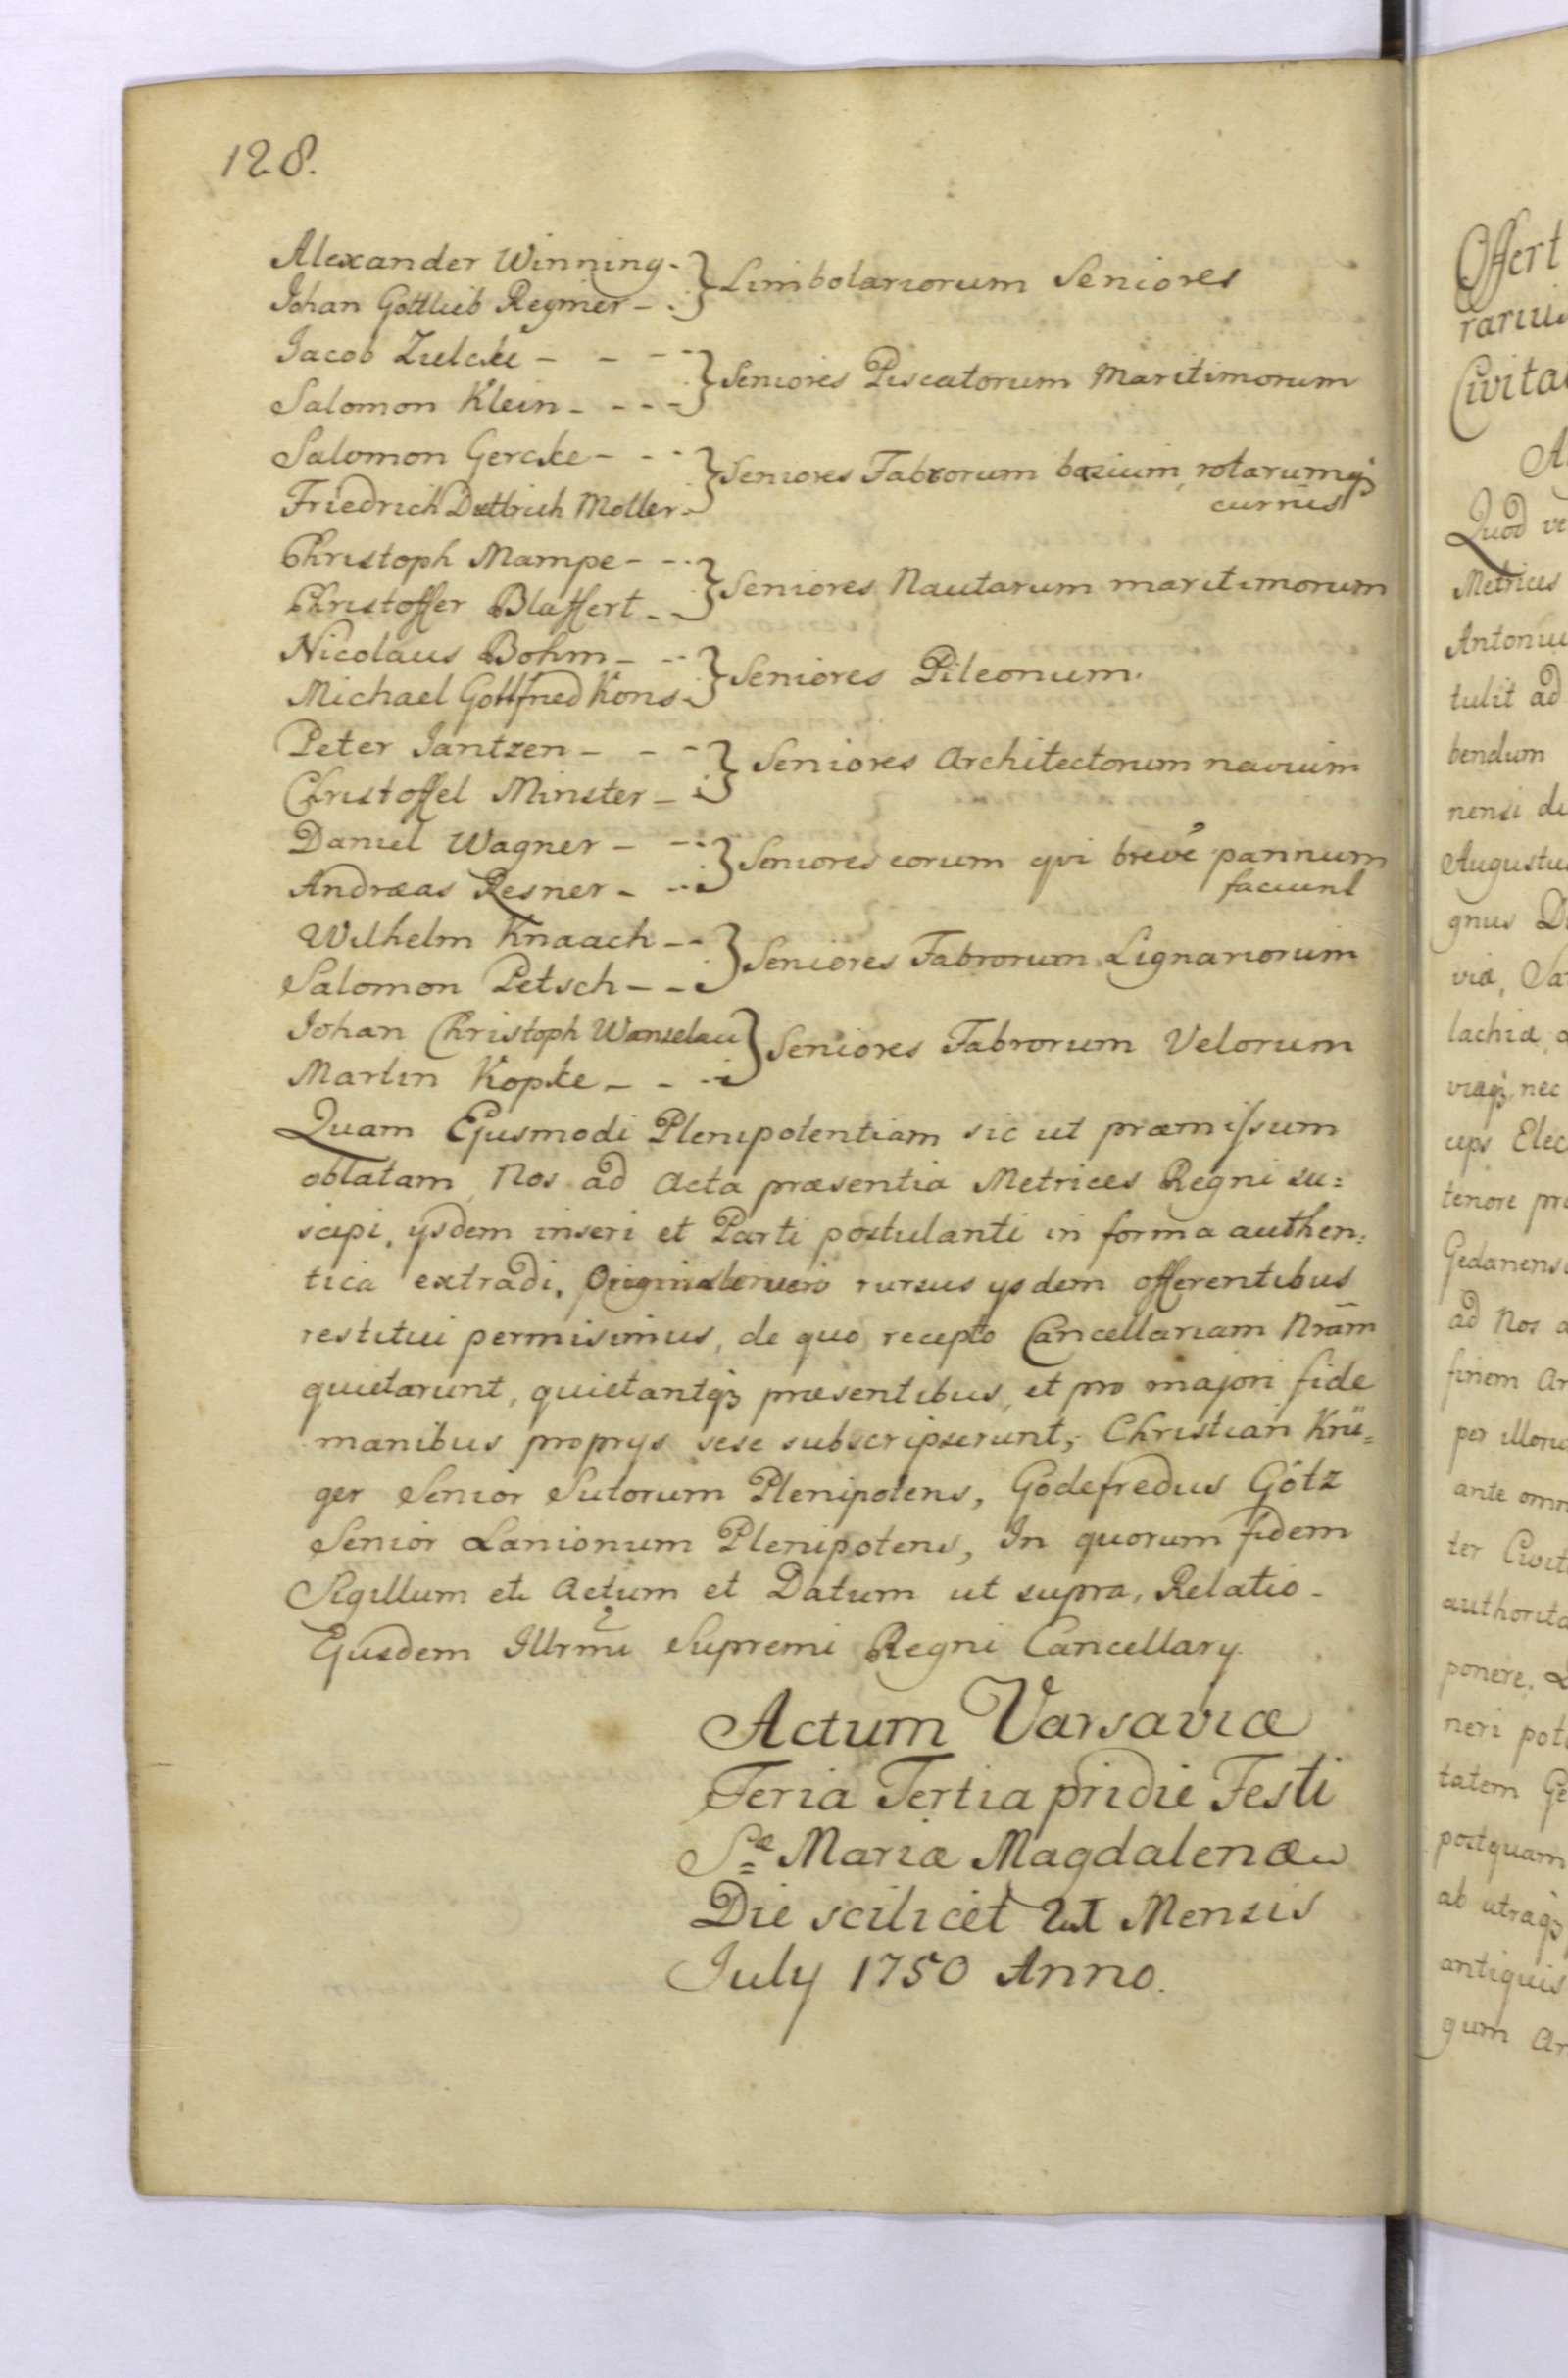 128.
Alexander Winning - } Limbolariorum Seniores
Johan Gottlieb Regmer - }
Jacob Zielcke - - - } Seniores Piscatorum Maritimorum
Salomon Klein - - - }
Salomon Gercke - - - } Seniores Fabrorum basium, rotarumq
Friedrich Dettrich Moller - } currus
Christoph Mampe - - - } Seniores Nautarum maritimorum
Christoffer Blaffert - - }
Nicolaus Bohm - - - } Seniores Pileonum.
Michael Gottfried Kons - }
Peter Jantzen - - - } Seniores Architectorum navium
Christoffel Minster - }
Daniel Wagner - - - } Seniores eorum qvi breve pannum
Andræas Resner - - - } faciunt
Wilhelm Knaach - - } Seniores Fabrorum Lignariorum
Salomon Petsch - - }
Johan Christoph Wanselau } Seniores Fabrorum Velorum
Martin Kopke - - - }
Quam Ejusmodi Plenipotentiam sic ut præmissum
oblatam, Nos ad Acta præsentia Metrices Regni su=
scipi, ysdem inseri et Parti postulanti in forma authen=
tica extradi, Originale vero rursus ysdem offerentibus
restitui permisimus, de quo recepto Cancellariam Nram̄
quietarunt, quietantq præsentibus, et pro majori fide
manibus proprys sese subscripserunt, Christian Krü=
ger Senior Sutorum Plenipotens, Godefredus Götz
Senior Lanionum Plenipotens, In quorum fidem
Sigillum etc Actum et Datum ut supra, Relatio
Ejusdem Illrmi Supremi Regni Cancellary.
Actum Varsaviæ
Feria Tertia pridie Festi
Sæ Mariæ Magdalenæ
Die scilicet 21 Mensis
July 1750 Anno.
Offert
rariu
Civita
A
Quod ve
Metrices
Antoniu
tulit ad
bendum
nensi de
Augustu
gnus D
viæ, Sa
lachiæ
viæq, nec
ceps Elec
tenore pr
Gedanens
ad Nos a
finem ar
per illoru
ante omn
ter Civit
authorita
ponere.
neri pot
tatem Ge
postquam
ab utraq
antiquis
gum Ar